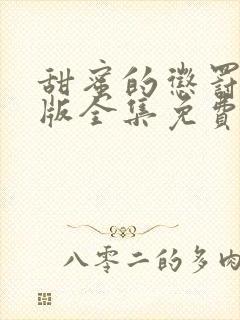 甜蜜的懲罰
版全集免費
八零二的多肉